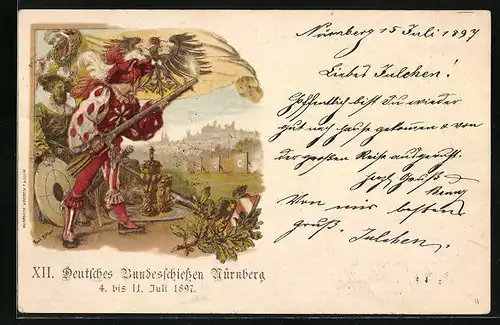 Nürnberg 15 Juli 1897
Liebes Julchen!
Hoffentlich bist Du wieder
gut nach Hause gekommen & von
der großen Reise ausgeruht.
Gruß
Von mir besten
Gruß.
Julchen.
XII. Deutsches Bundesschießen Nürnberg
4. bis 11. Juli 1897.